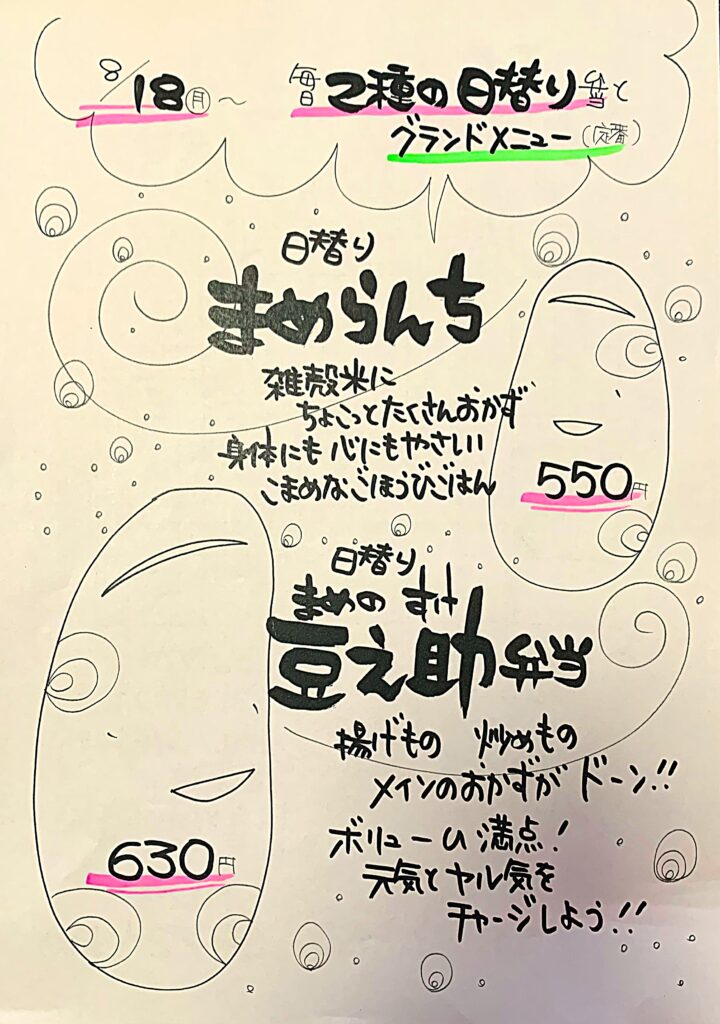 8/18(月)～ 毎日2種の日替り弁当と
グランドメニュー(定番)
日替り
まめらんち
雑穀米に
ちょこっとたくさんおかず
身体にも心にもやさしい
こまめなごほうびごはん
550円
日替り
まめの すけ
豆之助弁当
揚げもの 炒めもの
メインのおかずが ドーン!!
ボリューム満点!
元気とヤル気を
チャージしよう!!
630円